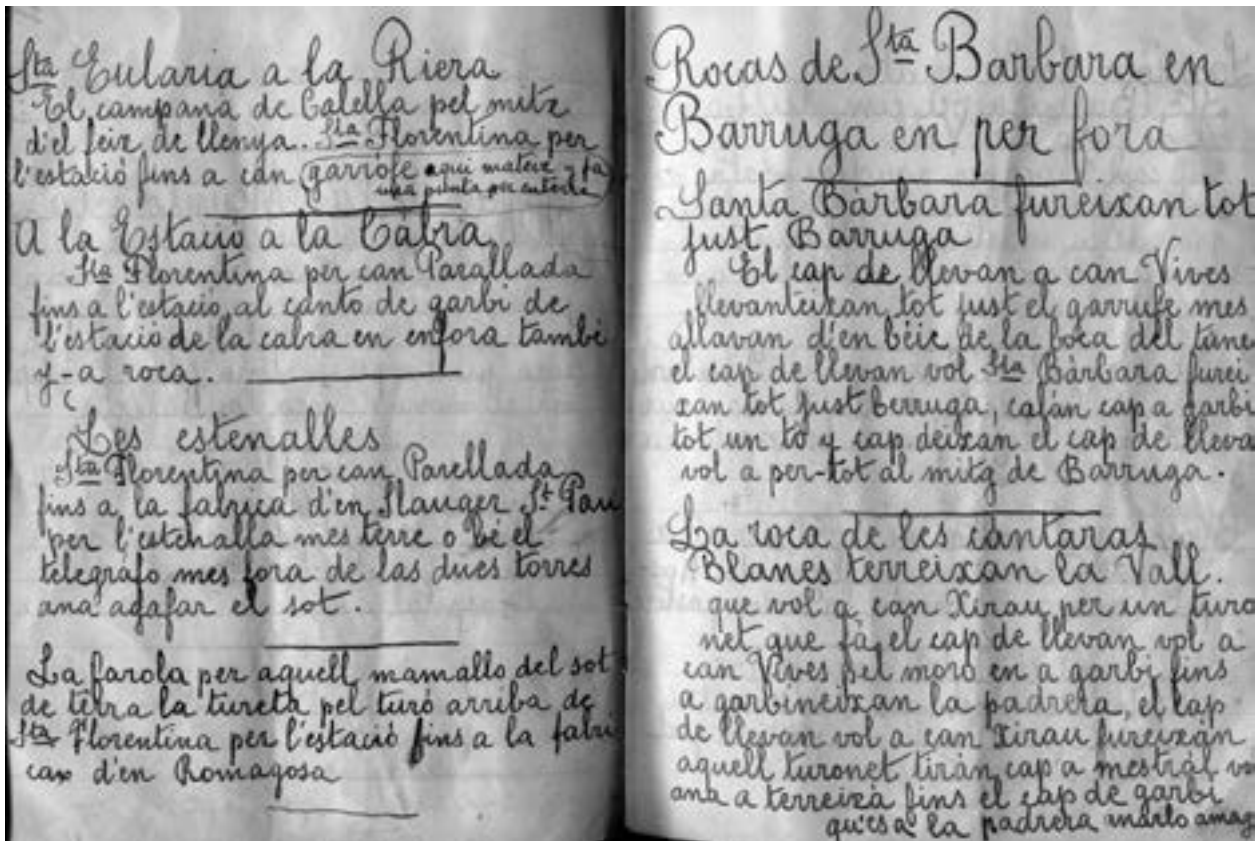 Sta Eularia a la Riera
El campana de Calella pel mitx
d'el feix de llenya. Sta Florentina per
l'estació fins a can garrofe aqui mateix y fa
una punta per enterra
A la Estació a la Cabra
Sta Florentina per can Parallada
fins a l'estacio al canto de garbi de
l'estació de la cabra en enfora també
y-a roca.
Les estenalles
Sta Florentina per can Parellada
fins a la fabrica d'en Llauger St. Pau
per l'estenalla mes terre o bé el
telegrafo mes fora de las dues torres
ana agafar el sot.
La farola per aquell mamallo del sot
de terra la tureta pel turó arriba de
Sta Florentina per l'estació fins a la fabri
can d'en Romagosa
Rocas de Sta Barbara en
Barruga en per fora
Santa Bàrbara fureixan tot
just Barruga
El cap de llevan a can Vives
llevanteixan tot just el garrufe mes
allavan d'en béic de la boca del tune
el cap de llevan vol Sta Bàrbara furei
xan tot just berruga, cafán cap a garbi
tot un tó y cap deixan el cap de lleva
vol a per-tot al mitg de Barruga.
La roca de les cantaras
Blanes terreixan la Vall.
que vol a can Xirau per un turo
net que fá el cap de llevan vol a
can Vives pel moro en a garbi fins
a garbineixan la padrera, el cap
de llevan vol a can Xirau fureixan
aquell turonet tirán cap a mestral
ana a terreixá fins el cap de garbi
qu'es a la padrera marlo amag